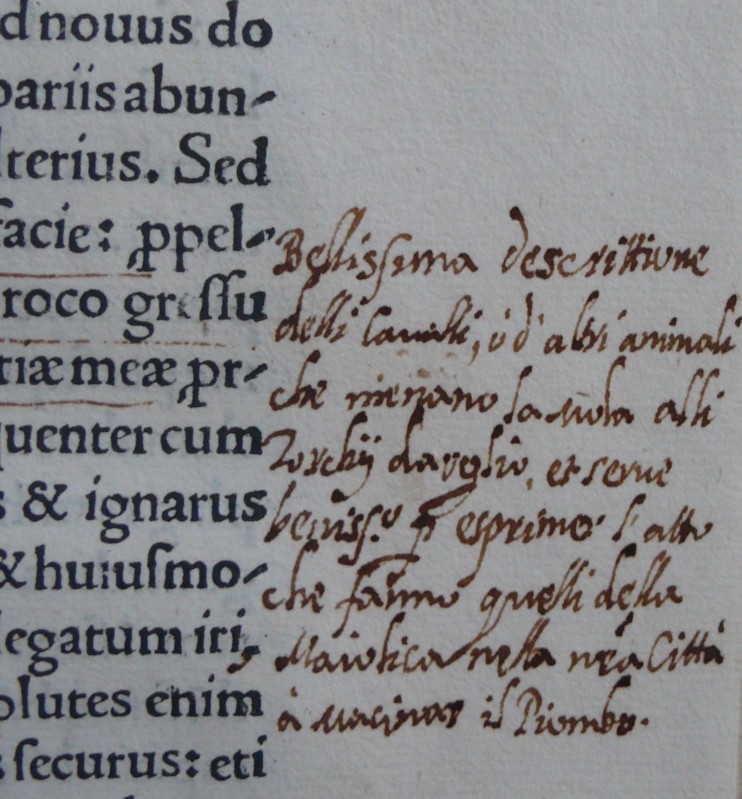 d nouus do
pariis abun-
lterius. Sed
facie: ꝓpel-
roco gressu
tiæ meæ ꝓr-
quenter cum
s & ignarus
& huiuſmo-
legatum iri,
olutes enim
s ſecurus: eti
Bellissima descrittione
delli Cavalli, ò d'altri animali
che menano la ruota alli
Torchij da oglio, et serve
beniss.o p esprimer l'atto
che fanno quelli della
Maiolica nella nr̃a Città
à macinar il Piombo.